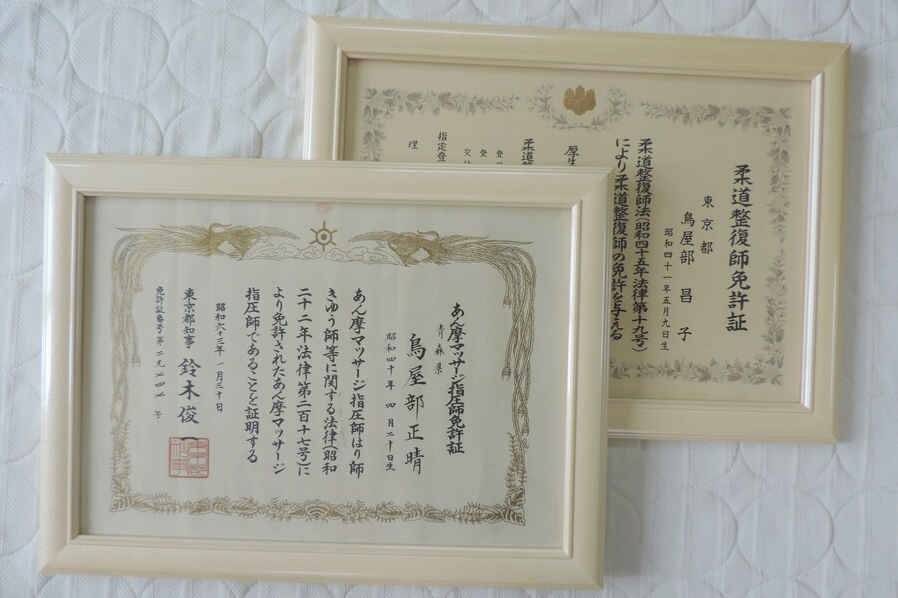 あん摩マッサージ指圧師免許証
青森県
鳥屋部正晴
昭和四十年 四月二十日生
あん摩マッサージ指圧師はり師
きゆう師等に関する法律(昭和
二十二年法律第二百十七号)に
より免許されたあん摩マッサージ
指圧師であることを証明する
昭和六十三年 月三十日
東京都知事 鈴木俊一
免許証番号第二九二四四号
柔道整復師免許証
東京都
鳥屋部 昌子
昭和四十一年五月九日生
柔道整復師法(昭和四十五年法律第十九号)
により柔道整復師の免許を与える
厚生
登
登
交付
柔道整
指定登
理